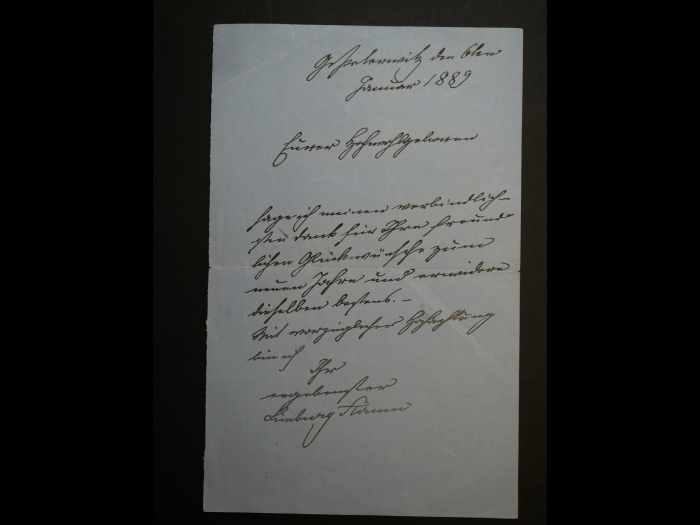 den 6ten
Januar 1889
Eurer Hochwohlgeboren
sage ich meinen verbindlich-
sten Dank für Ihre freund-
lichen Glückwünsche zum
neuen Jahre und erwidere
dieselben bestens. –
Mit vorzüglicher Hochachtung
bin ich
Ihr
ergebenster